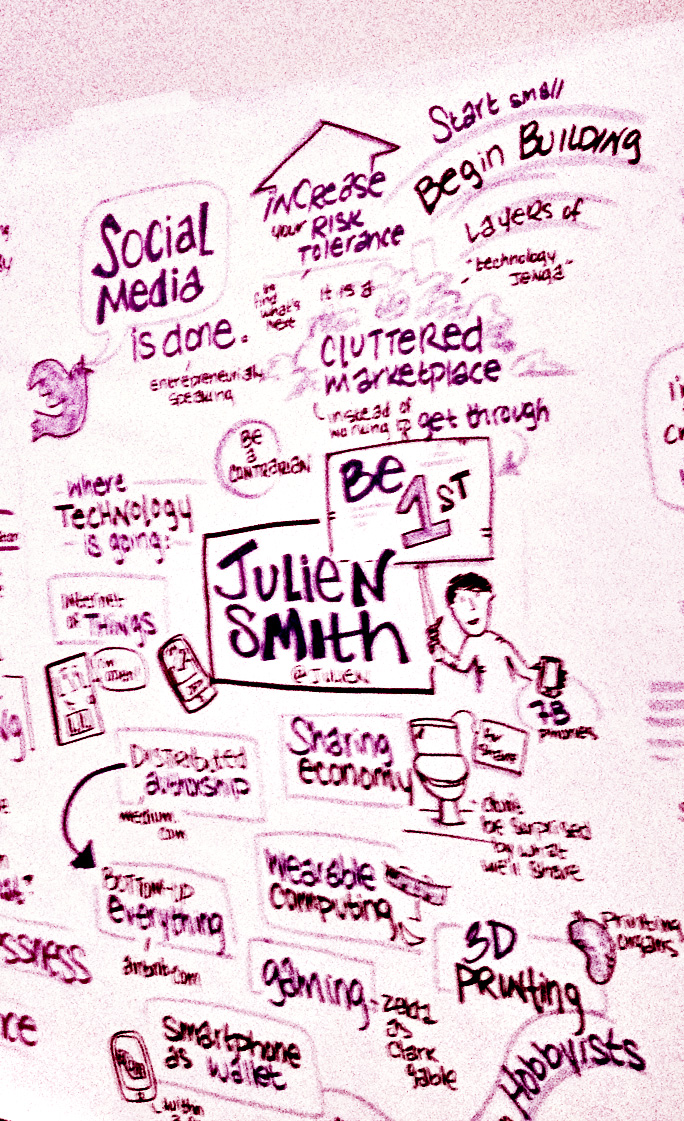 Start small
Begin Building
Layers of
"technology
Jenga"
increase
your Risk
Tolerance
to
find
what's
next
Social
Media
is done.
entrepreneurially
speaking
it is a
cluttered
marketplace
instead of
working to get through
Be
1st
Be
a
contrarian
where
Technology
is going:
Internet
of Things
Julien
Smith
@Julien
7B
phones
Sharing
economy
for
share
don't
be surprised
by what
we'll share
Distributed
authorship
medium.
com
Bottom-up
everything
airbnb.com
wearable
computing
gaming
zelda
as
clark
gable
3D
Printing
Printing
organs
smartphone
as wallet
within
Hobbyists